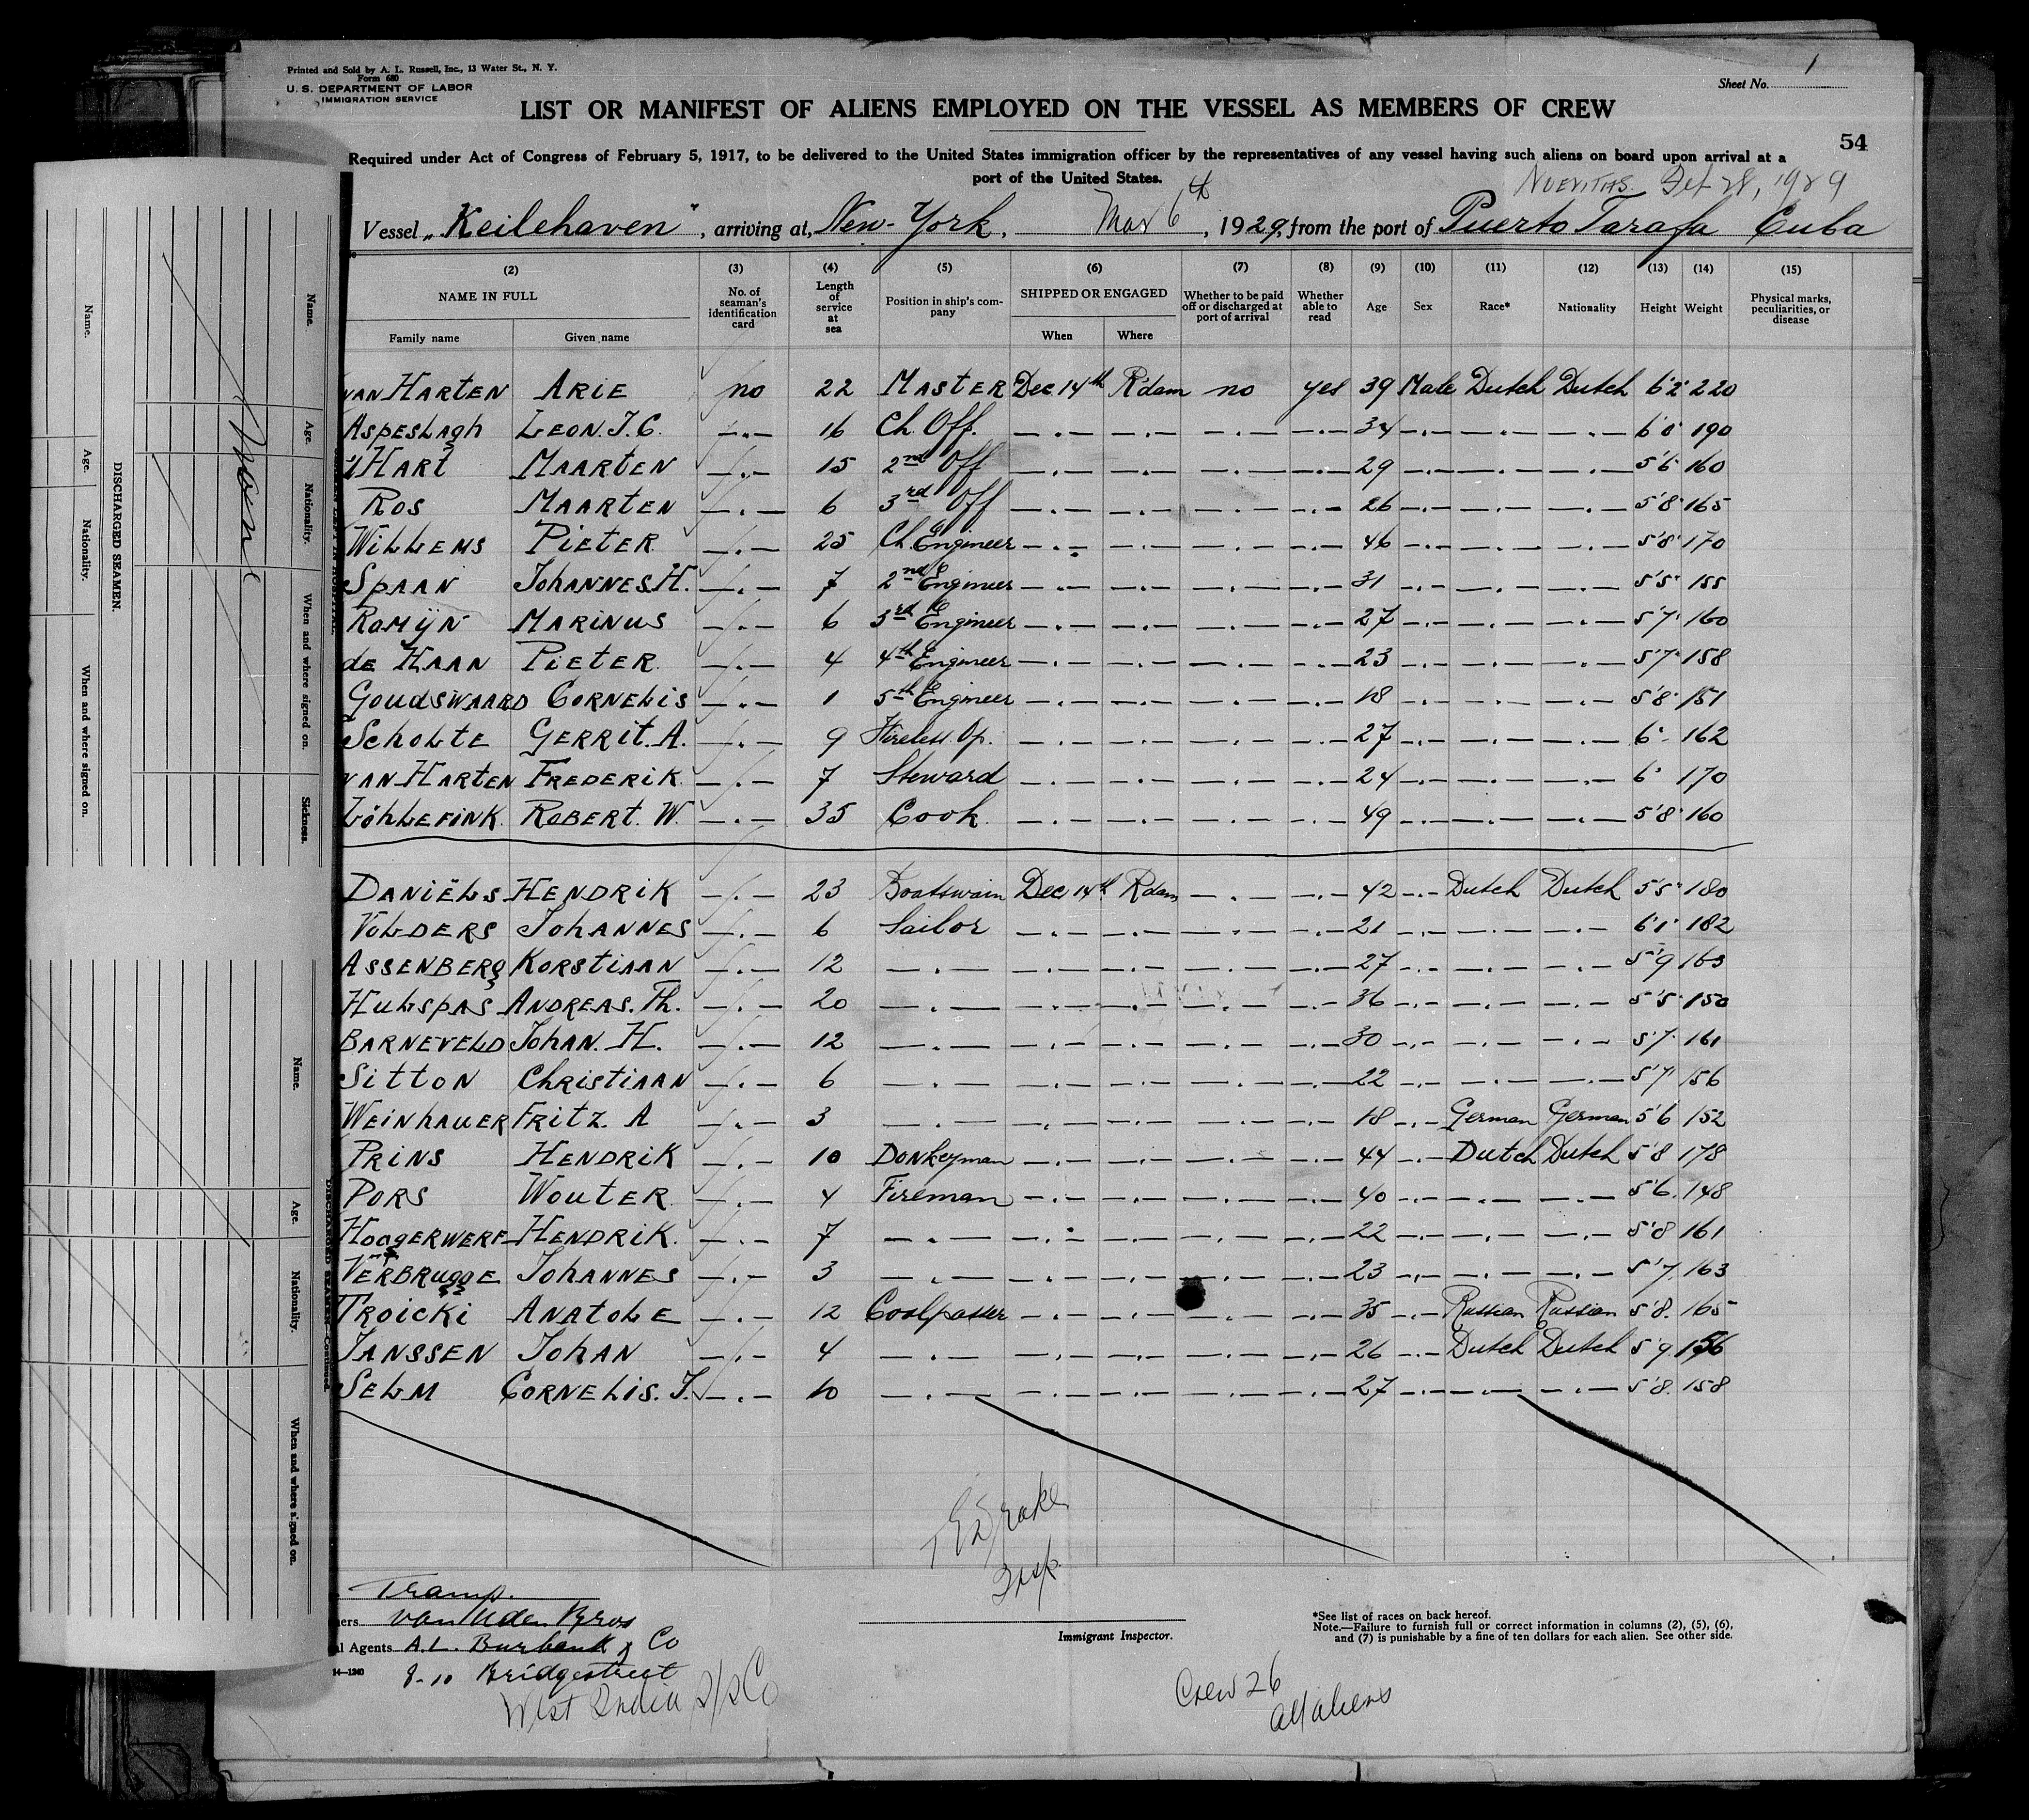 Printed and Sold by A. L. Russell, Inc., 13 Water St., N. Y.
Form 680
U. S. DEPARTMENT OF LABOR
IMMIGRATION SERVICE
Sheet No. 1
LIST OR MANIFEST OF ALIENS EMPLOYED ON THE VESSEL AS MEMBERS OF CREW
54
Required under Act of Congress of February 5, 1917, to be delivered to the United States immigration officer by the representatives of any vessel having such aliens on board upon arrival at a
port of the United States.
NUEVITAS. Feb 28, 1929
Vessel „Keilehaven", arriving at, New-York, Mar 6th, 1929, from the port of Puerto Tarafa Cuba
(2) (3) (4) (5) (6) (7) (8) (9) (10) (11) (12) (13) (14) (15)
NAME IN FULL No. of seaman's identification card Length of service at sea Position in ship's company SHIPPED OR ENGAGED Whether to be paid off or discharged at port of arrival Whether able to read Age Sex Race* Nationality Height Weight Physical marks, peculiarities, or disease
Family name Given name When Where
VAN HARTEN ARIE no 22 MASTER Dec 14th R'dam no yes 39 Male Dutch Dutch 6'2" 220
ASPESLAGH LEON. J. C. —.— 16 Ch. Off. —.— —.— —.— —.— 34 —.— —.— —.— 6'0" 190
'tHART MAARTEN —.— 15 2nd Off —.— —.— —.— —.— 29 —.— —.— —.— 5'6" 160
ROS MAARTEN —.— 6 3rd Off —.— —.— —.— —.— 26 —.— —.— —.— 5'8" 165
WILLEMS PIETER. —.— 25 Ch. Engineer —.— —.— —.— —.— 46 —.— —.— —.— 5'8" 170
SPAAN JOHANNES H. —.— 7 2nd Engineer —.— —.— —.— —.— 31 —.— —.— —.— 5'5" 155
ROMIJN MARINUS —.— 6 3rd Engineer —.— —.— —.— —.— 27 —.— —.— —.— 5'7" 160
de HAAN PIETER. —.— 4 4th Engineer —.— —.— —.— —.— 23 —.— —.— —.— 5'7" 158
GOUDSWAARD CORNELIS —.— 1 5th Engineer —.— —.— —.— —.— 18 —.— —.— —.— 5'8" 151
SCHOLTE GERRIT. A. —.— 9 Wireless. Op. —.— —.— —.— —.— 27 —.— —.— —.— 6'- 162
VAN HARTEN FREDERIK. —.— 7 Steward —.— —.— —.— —.— 24 —.— —.— —.— 6' 170
LÖHLEFINK. ROBERT. W. —.— 35 Cook. —.— —.— —.— —.— 49 —.— —.— —.— 5'8" 160
DANIËLS HENDRIK —.— 23 Boatswain Dec 14th R'dam —.— —.— 42 —.— Dutch Dutch 5'5" 180
VOLDERS JOHANNES —.— 6 Sailor —.— —.— —.— —.— 21 —.— —.— —.— 6'1" 182
ASSENBERG KORSTIAAN —.— 12 —.— —.— —.— —.— —.— 27 —.— —.— —.— 5'9 163
HULSPAS ANDREAS. Th. —.— 20 —.— —.— —.— —.— —.— 36 —.— —.— —.— 5'5" 150
BARNEVELD JOHAN. H. —.— 12 —.— —.— —.— —.— —.— 30 —.— —.— —.— 5'7" 161
SITTON CHRISTIAAN —.— 6 —.— —.— —.— —.— —.— 22 —.— —.— —.— 5'7" 156
WEINHAUER FRITZ. A —.— 3 —.— —.— —.— —.— —.— 18 —.— German German 5'6 152
PRINS HENDRIK —.— 10 Donkeyman —.— —.— —.— —.— 44 —.— Dutch Dutch 5'8 178
PORS WOUTER —.— 4 Fireman —.— —.— —.— —.— 40 —.— —.— —.— 5'6. 148
HOOGERWERF HENDRIK. —.— 7 —.— —.— —.— —.— —.— 22 —.— —.— —.— 5'8 161
VERBRUGGE JOHANNES —.— 3 —.— —.— —.— —.— —.— 23 —.— —.— —.— 5'7. 163
TROICKI ANATOLE —.— 12 Coalpasser —.— —.— —.— —.— 35 —.— Russian Russian 5'8. 165
JANSSEN JOHAN —.— 4 —.— —.— —.— —.— —.— 26 —.— Dutch Dutch 5'9. 156
SELM CORNELIS. J. —.— 10 —.— —.— —.— —.— —.— 27 —.— —.— —.— 5'8. 158
Drake
Insp.
Tramp.
van Uden Bros
Agents A. L. Burbank & Co
14—1240
8-10 Bridgestreet
West India S/S Co
Immigrant Inspector.
*See list of races on back hereof.
Note.—Failure to furnish full or correct information in columns (2), (5), (6),
and (7) is punishable by a fine of ten dollars for each alien. See other side.
Crew 26
all aliens
DISCHARGED SEAMEN.
Name. Age. Nationality. When and where signed on.
Name. Age. Nationality. When and where signed on. Sickness.
None
Name. Age. Nationality. When and where signed on.
DISCHARGED SEAMEN—Continued.